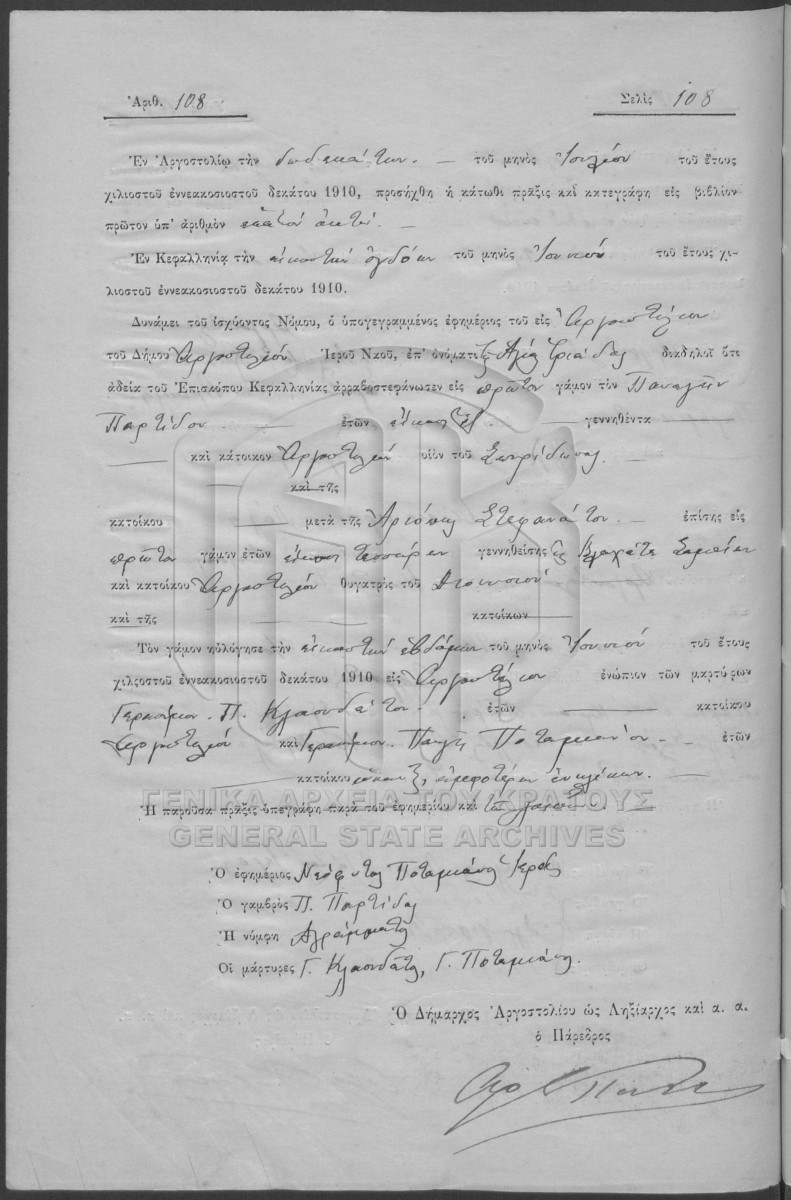 Ἀριθ. 108
Σελὶς 108
Ἐν Ἀργοστολίῳ τὴν δωδεκάτην. — τοῦ μηνὸς Ἰουλίου τοῦ ἔτους
χιλιοστοῦ ἐννεακοσιοστοῦ δεκάτου 1910, προσήχθη ἡ κάτωθι πρᾶξις καὶ κατεγράφη εἰς βιβλίον
πρῶτον ὑπ' ἀριθμὸν ἑκατὸν ὀκτώ. —
Ἐν Κεφαλληνίᾳ τὴν εἰκοστὴν ὀγδόην τοῦ μηνὸς Ἰουνίου τοῦ ἔτους χι-
λιοστοῦ ἐννεακοσιοστοῦ δεκάτου 1910.
Δυνάμει τοῦ ἰσχύοντος Νόμου, ὁ ὑπογεγραμμένος ἐφημέριος τοῦ εἰς Ἀργοστόλιον
τοῦ Δήμου Ἀργοστολίου Ἱεροῦ Ναοῦ, ἐπ' ὀνόματι τῆς Ἁγίας Τριάδος διαδηλοῖ ὅτι
ἀδείᾳ τοῦ Ἐπισκόπου Κεφαλληνίας ἀρραβοστεφάνωσεν εἰς πρῶτον γάμον τὸν Παναγῆν
Παρτίδον — ἐτῶν εἴκοσι ἓξ — γεννηθέντα —
— καὶ κάτοικον Ἀργοστολίου υἱὸν τοῦ Σπυρίδωνος
— καὶ τῆς
κατοίκου — μετὰ τῆς Στεφανάτου — ἐπίσης εἰς
πρῶτον γάμον ἐτῶν εἴκοσι τεσσάρων γεννηθείσης εἰς Βλαχάτα Σαμαίων
καὶ κατοίκου Ἀργοστολίου θυγατρὸς τοῦ Διονυσίου —
καὶ τῆς — κατοίκων —
Τὸν γάμον ηὐλόγησε τὴν εἰκοστὴν ἑβδόμην τοῦ μηνὸς Ἰουνίου τοῦ ἔτους
χιλιοστοῦ ἐννεακοσιοστοῦ δεκάτου 1910 εἰς Ἀργοστόλιον ἐνώπιον τῶν μαρτύρων
Γερασίμου Π. Κλαουδάτου. ἐτῶν — κατοίκου
Ἀργοστολίου καὶ Γερασίμου Παναγῆ Ποταμιάνου — ἐτῶν
— κατοίκου ἀμφοτέρων ἐνηλίκων. —
Ἡ παροῦσα πρᾶξις ὑπεγράφη παρὰ τοῦ ἐφημερίου καὶ τῶν λοιπῶν. —
ΓΕΝΙΚΑ ΑΡΧΕΙΑ ΤΟΥ ΚΡΑΤΟΥΣ
GENERAL STATE ARCHIVES
Ὁ ἐφημέριος Νεόφυτος Ποταμιάνος Ἱερεὺς
Ὁ γαμβρὸς Π. Παρτίδος
Ἡ νύμφη Ἀγράμματος
Οἱ μάρτυρες Γ. Κλαουδάτος, Γ. Ποταμιάνος.
Ὁ Δήμαρχος Ἀργοστολίου ὡς Ληξίαρχος καὶ α. α.
ὁ Πάρεδρος